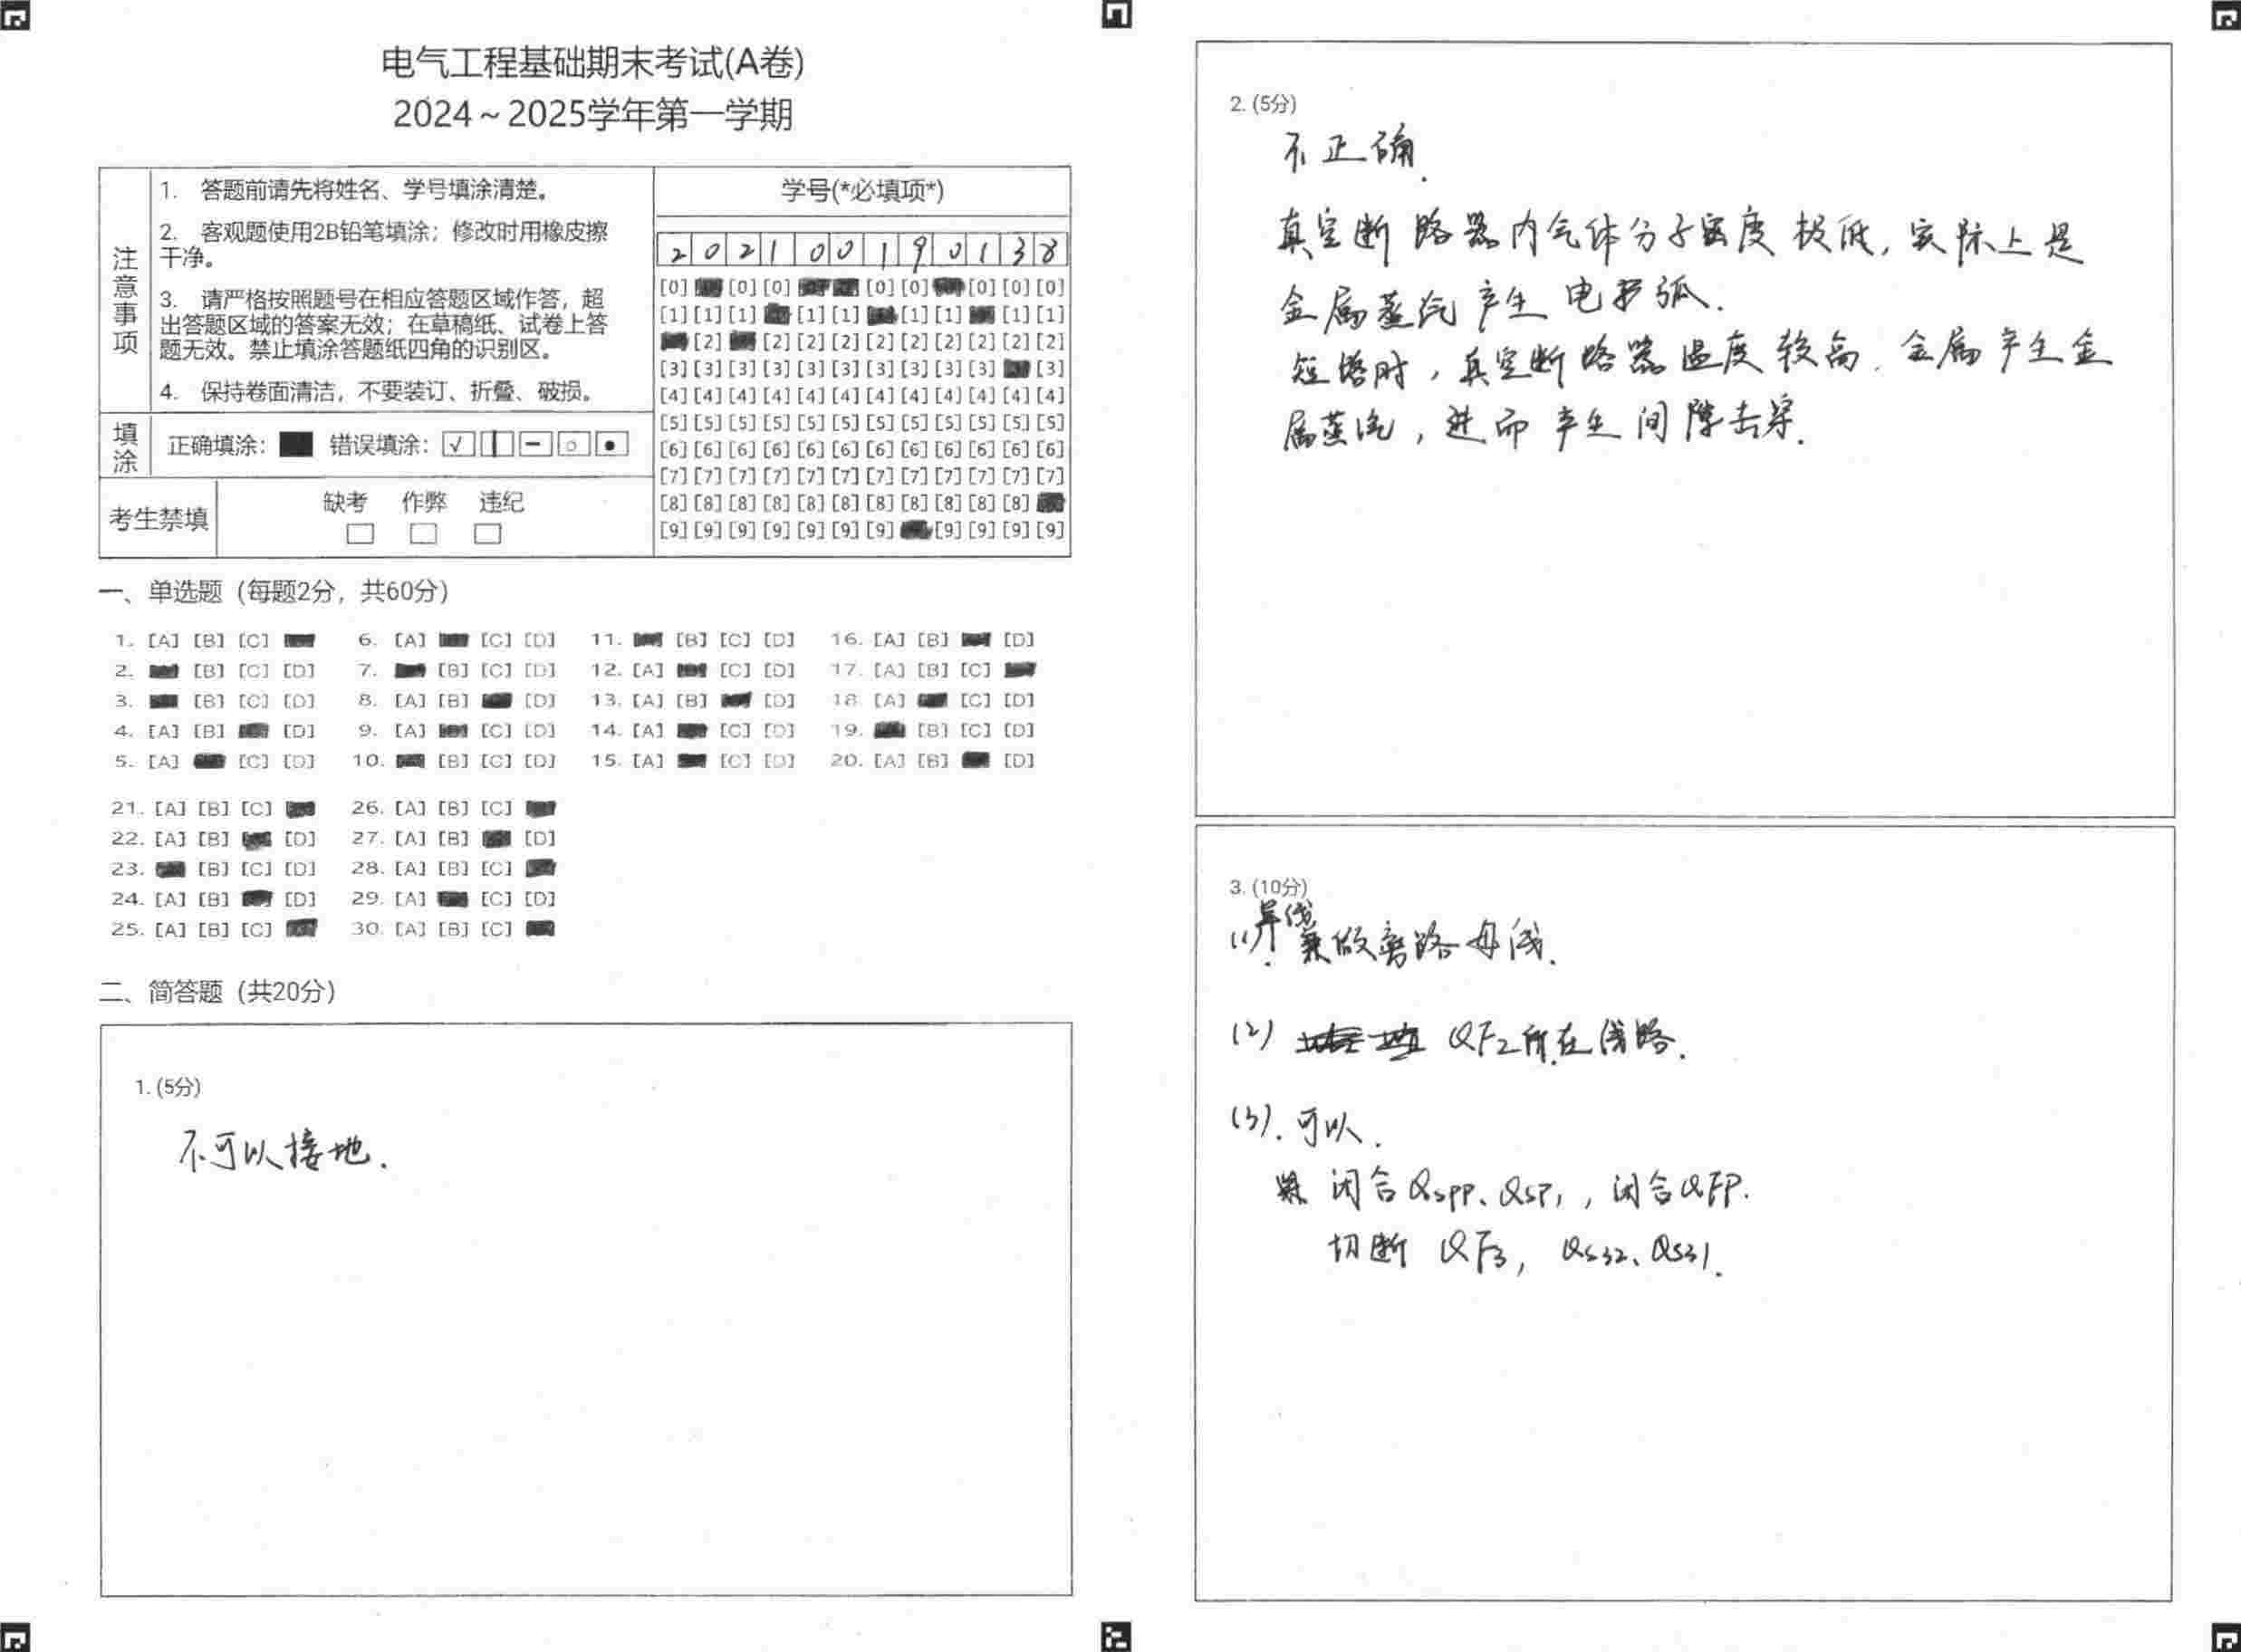 电气工程基础期末考试(A卷)
2024～2025学年第一学期
注意事项
1. 答题前请先将姓名、学号填涂清楚。
2. 客观题使用2B铅笔填涂；修改时用橡皮擦
干净。
3. 请严格按照题号在相应答题区域作答，超
出答题区域的答案无效；在草稿纸、试卷上答
题无效。禁止填涂答题纸四角的识别区。
4. 保持卷面清洁，不要装订、折叠、破损。
填涂
正确填涂： 错误填涂：
考生禁填
缺考 作弊 违纪
学号(*必填项*)
2 0 2 1 0 0 1 9 0 1 3 8
[0] [0] [0] [0] [0] [0] [0] [0]
[1] [1] [1] [1] [1] [1] [1] [1] [1]
[2] [2] [2] [2] [2] [2] [2] [2] [2] [2]
[3] [3] [3] [3] [3] [3] [3] [3] [3] [3] [3]
[4] [4] [4] [4] [4] [4] [4] [4] [4] [4] [4] [4]
[5] [5] [5] [5] [5] [5] [5] [5] [5] [5] [5] [5]
[6] [6] [6] [6] [6] [6] [6] [6] [6] [6] [6] [6]
[7] [7] [7] [7] [7] [7] [7] [7] [7] [7] [7] [7]
[8] [8] [8] [8] [8] [8] [8] [8] [8] [8] [8]
[9] [9] [9] [9] [9] [9] [9] [9] [9] [9] [9]
一、单选题（每题2分，共60分）
1. [A] [B] [C] 6. [A] [C] [D] 11. [B] [C] [D] 16. [A] [B] [D]
2. [B] [C] [D] 7. [B] [C] [D] 12. [A] [C] [D] 17. [A] [B] [C]
3. [B] [C] [D] 8. [A] [B] [D] 13. [A] [B] [D] 18. [A] [C] [D]
4. [A] [B] [D] 9. [A] [C] [D] 14. [A] [C] [D] 19. [B] [C] [D]
5. [A] [C] [D] 10. [B] [C] [D] 15. [A] [C] [D] 20. [A] [B] [D]
21. [A] [B] [C] 26. [A] [B] [C]
22. [A] [B] [D] 27. [A] [B] [D]
23. [B] [C] [D] 28. [A] [B] [C]
24. [A] [B] [D] 29. [A] [C] [D]
25. [A] [B] [C] 30. [A] [B] [C]
二、简答题（共20分）
1. (5分)
不可以接地.
2. (5分)
不正确.
真空断路器内气体分子密度极低, 实际上是
金属蒸汽产生电弧.
短路时, 真空断路器温度较高. 金属产生金
属蒸汽, 进而产生间隙击穿.
3. (10分)
(1). 单线兼做旁路母线.
(2) QF2所在线路.
(3). 可以.
闭合QSPP、QSP1, 闭合QFP.
切断 QF3, QS32、QS31.